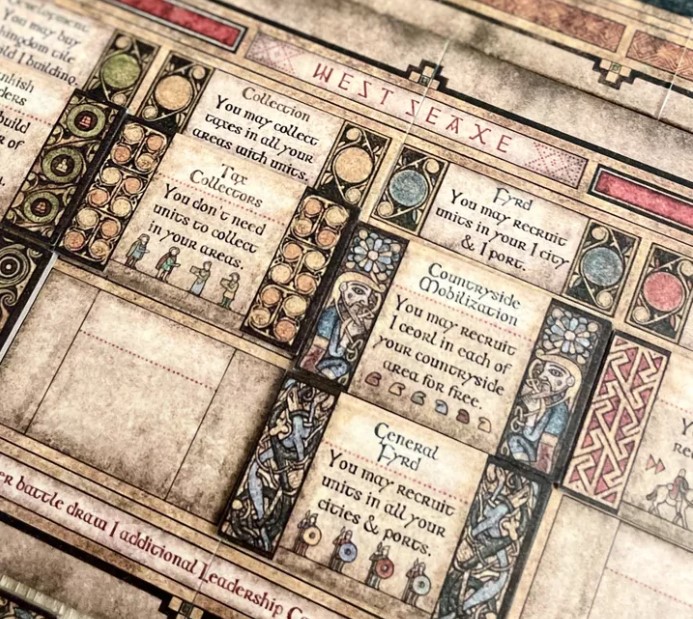 Development
You may buy
kingdom tile
build 1 building.
build
WEST SEAXE
Collection
You may collect
taxes in all your
areas with units.
Tax
Collectors
You don't need
units to collect
in your areas.
Fyrd
You may recruit
units in your 1 city
& 1 port.
Countryside
Mobilization
You may recruit
1 ceorl in each of
your countryside
area for free.
General
Fyrd
You may recruit
units in all your
cities & ports.
battle draw 1 additional Leadership